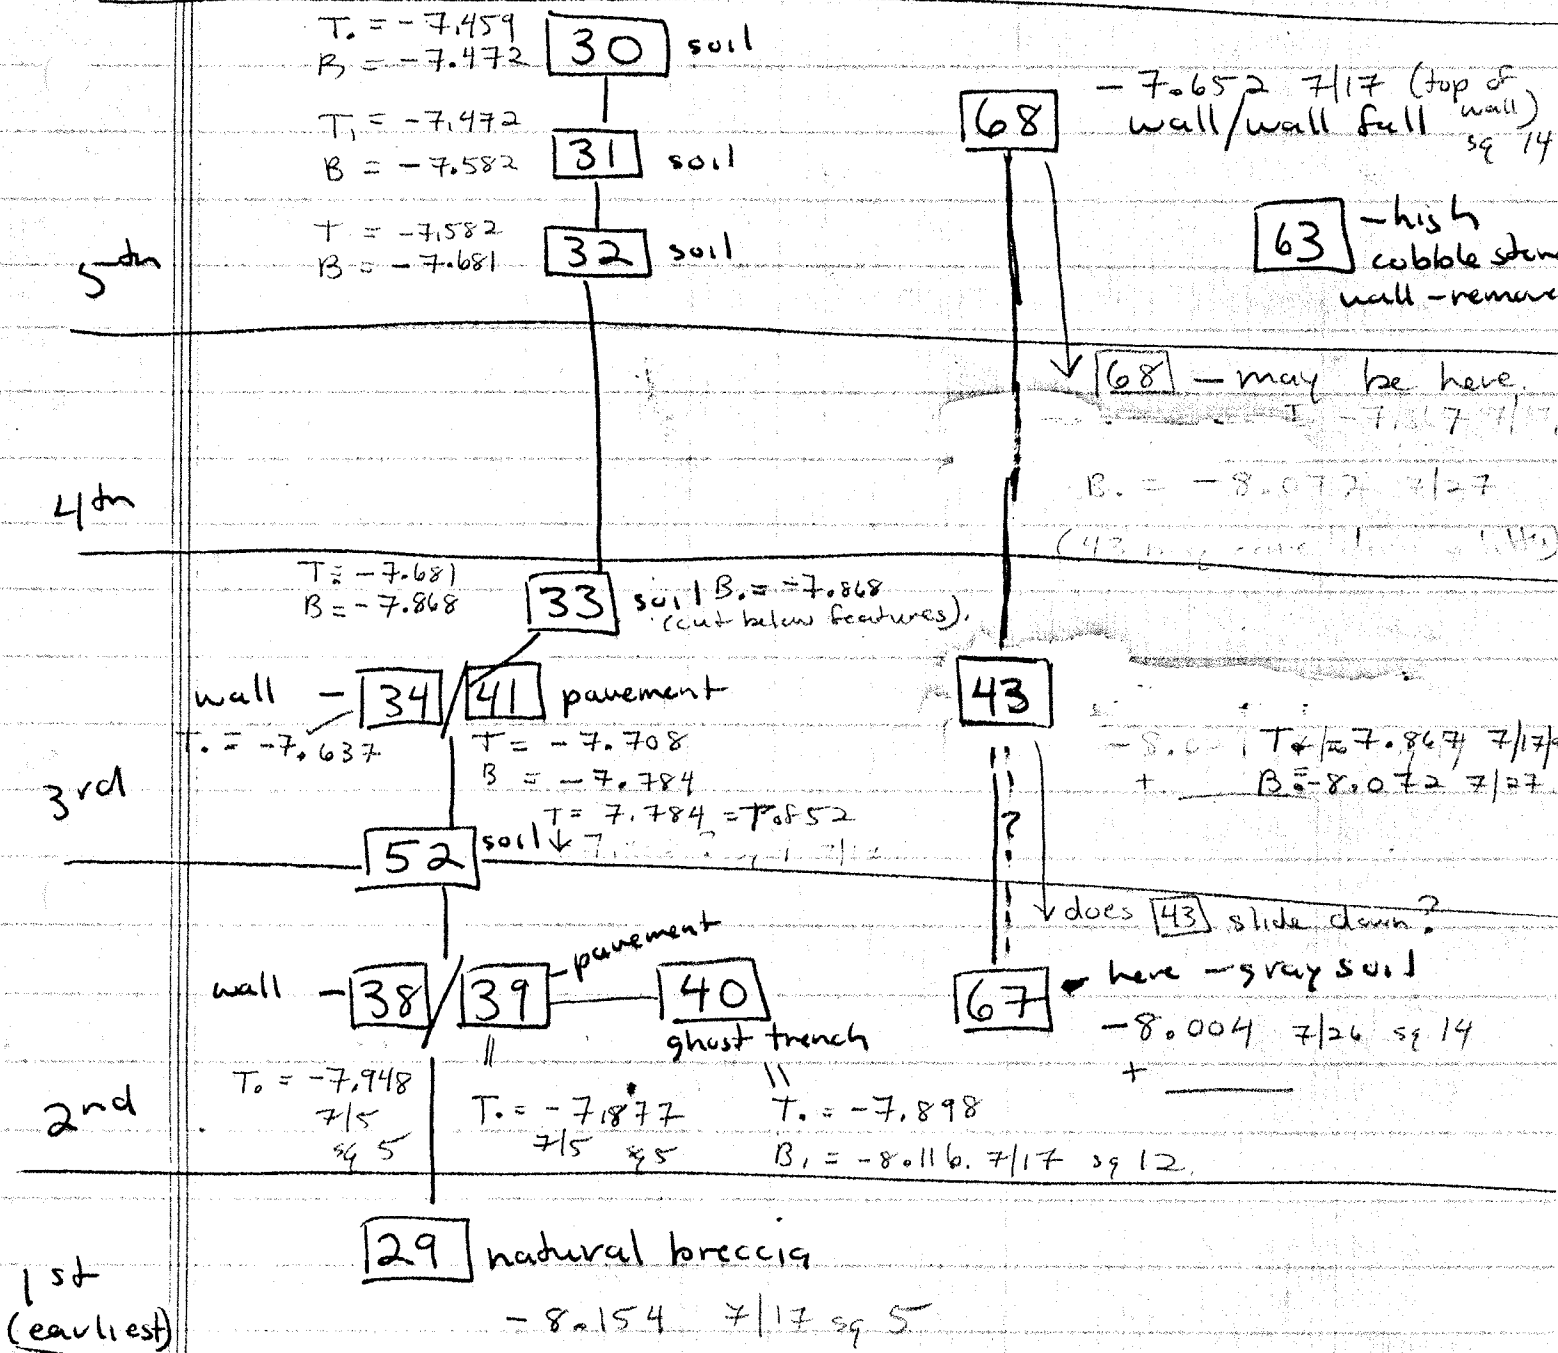 T. = -7.459
B = -7.472
30 soil
T, = -7.472
B = -7.582
31 soil
T = -7.582
B = -7.681
32 soil
68
- 7.652 7/17 (top of wall)
wall/wall fall sq 14
63 - high
cobble stone
wall - remove
5th
68 - may be here.
B. = -8.072 7/27
(43 may
4th
T = -7.681
B = -7.868
33 soil B. = -7.868
(cut below features).
wall - 34 / 41 pavement
T. = -7.637
T = -7.708
B = -7.784
T = 7.784 = 7.852
43
T = -7.867 7/17/9
+ B = -8.072 7/27
?
3rd
52 soil
does 43 slide down?
wall - 38 / 39 - pavement
40
ghost trench
67 - here - gray soil
-8.004 7/26 sq 14
+
T. = -7.948
7/5
sq 5
T. = -7.877
7/5 sq 5
T. = -7.898
B, = -8.116. 7/17 sq 12.
2nd
29 natural breccia
- 8.154 7/17 sq 5
1st
(earliest)